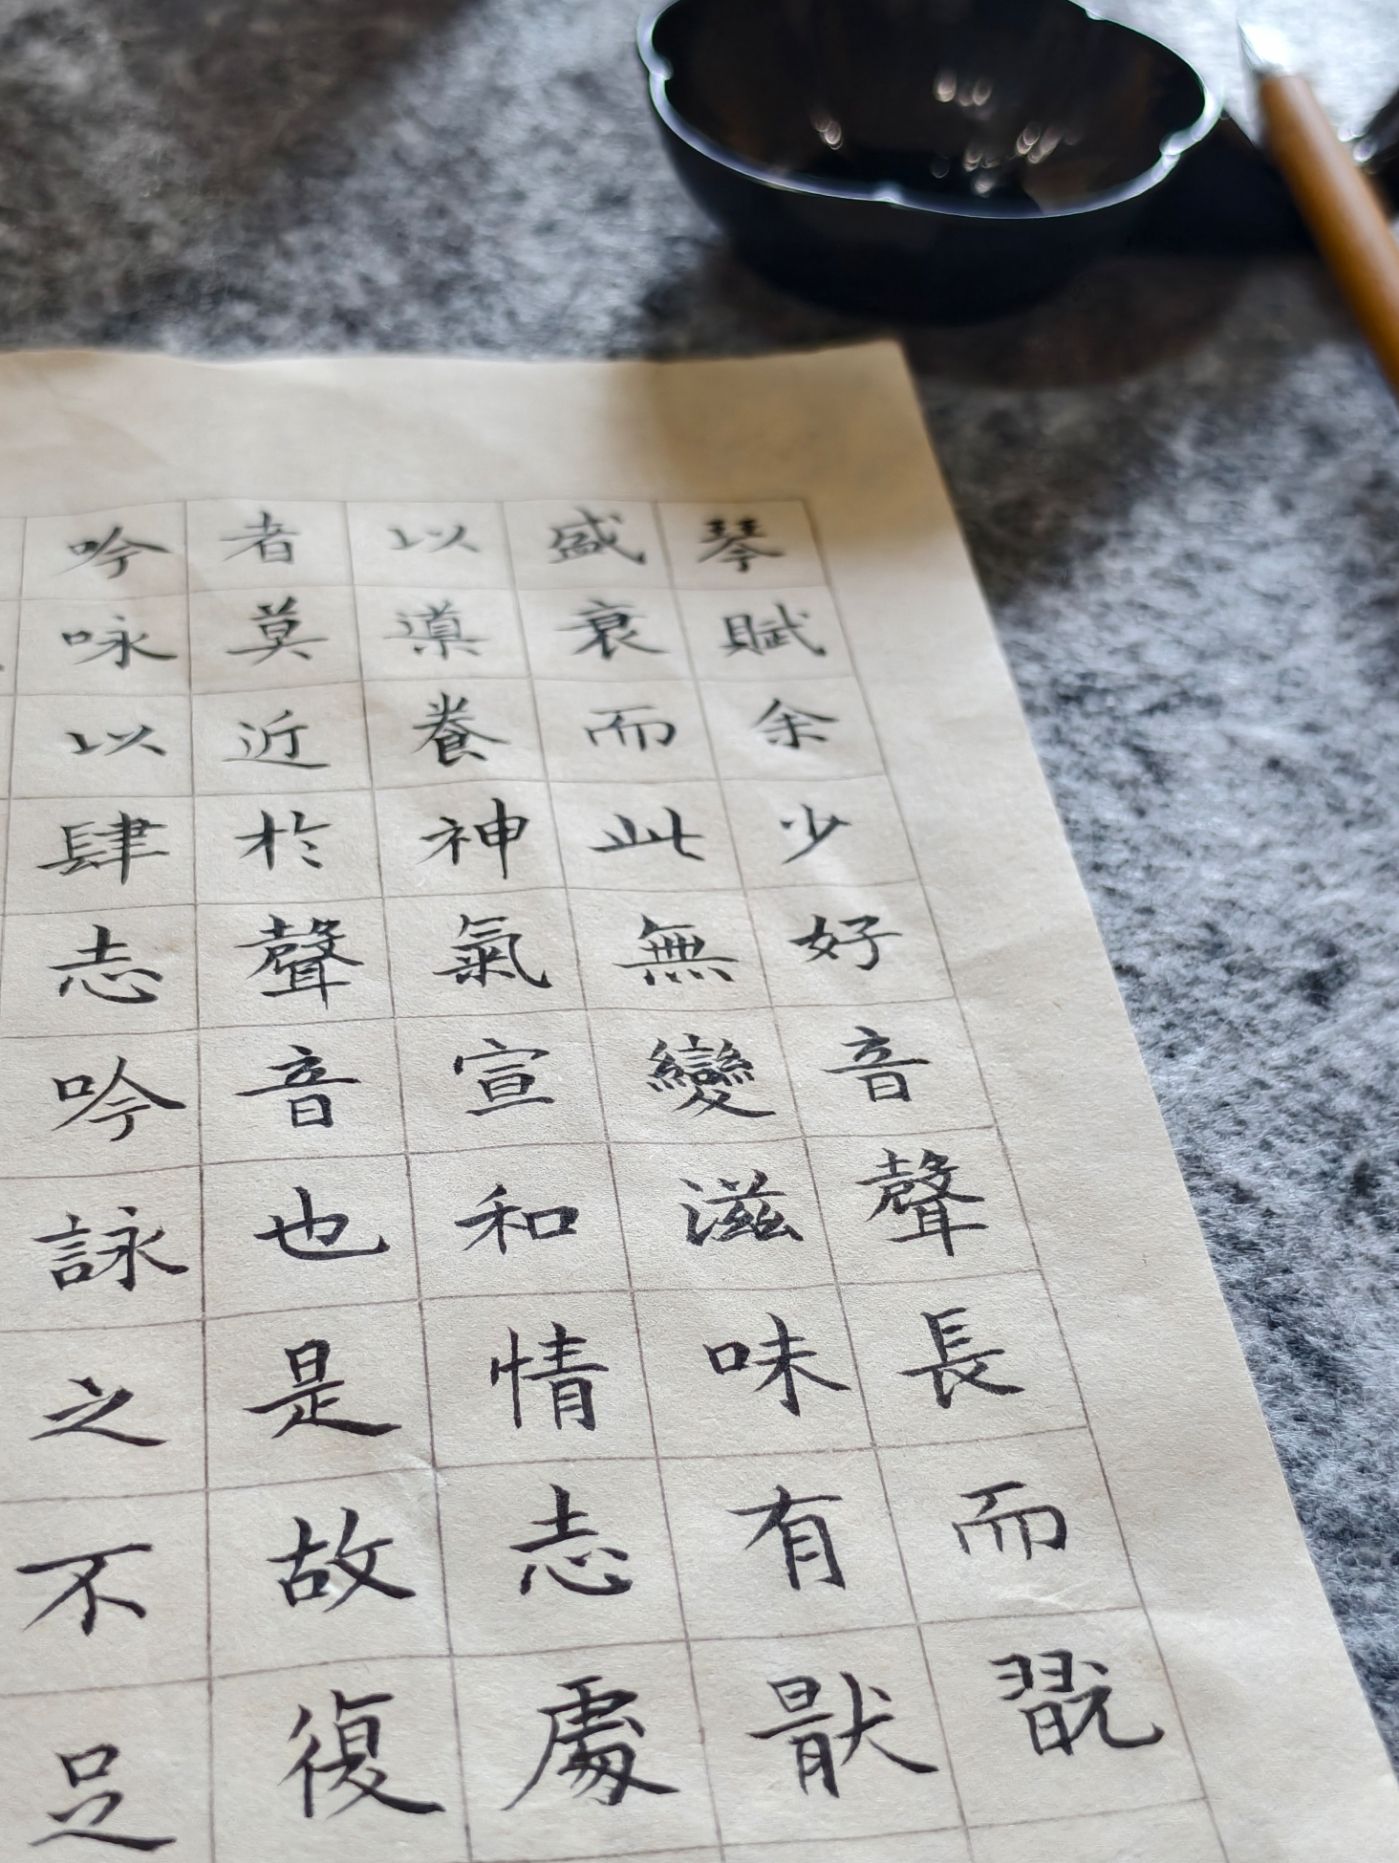 琴賦余少好音聲長而翫
盛衰而此無變滋味有猒
以導養神氣宣和情志處
者莫近於聲音也是故復
吟咏以肆志吟詠之不足